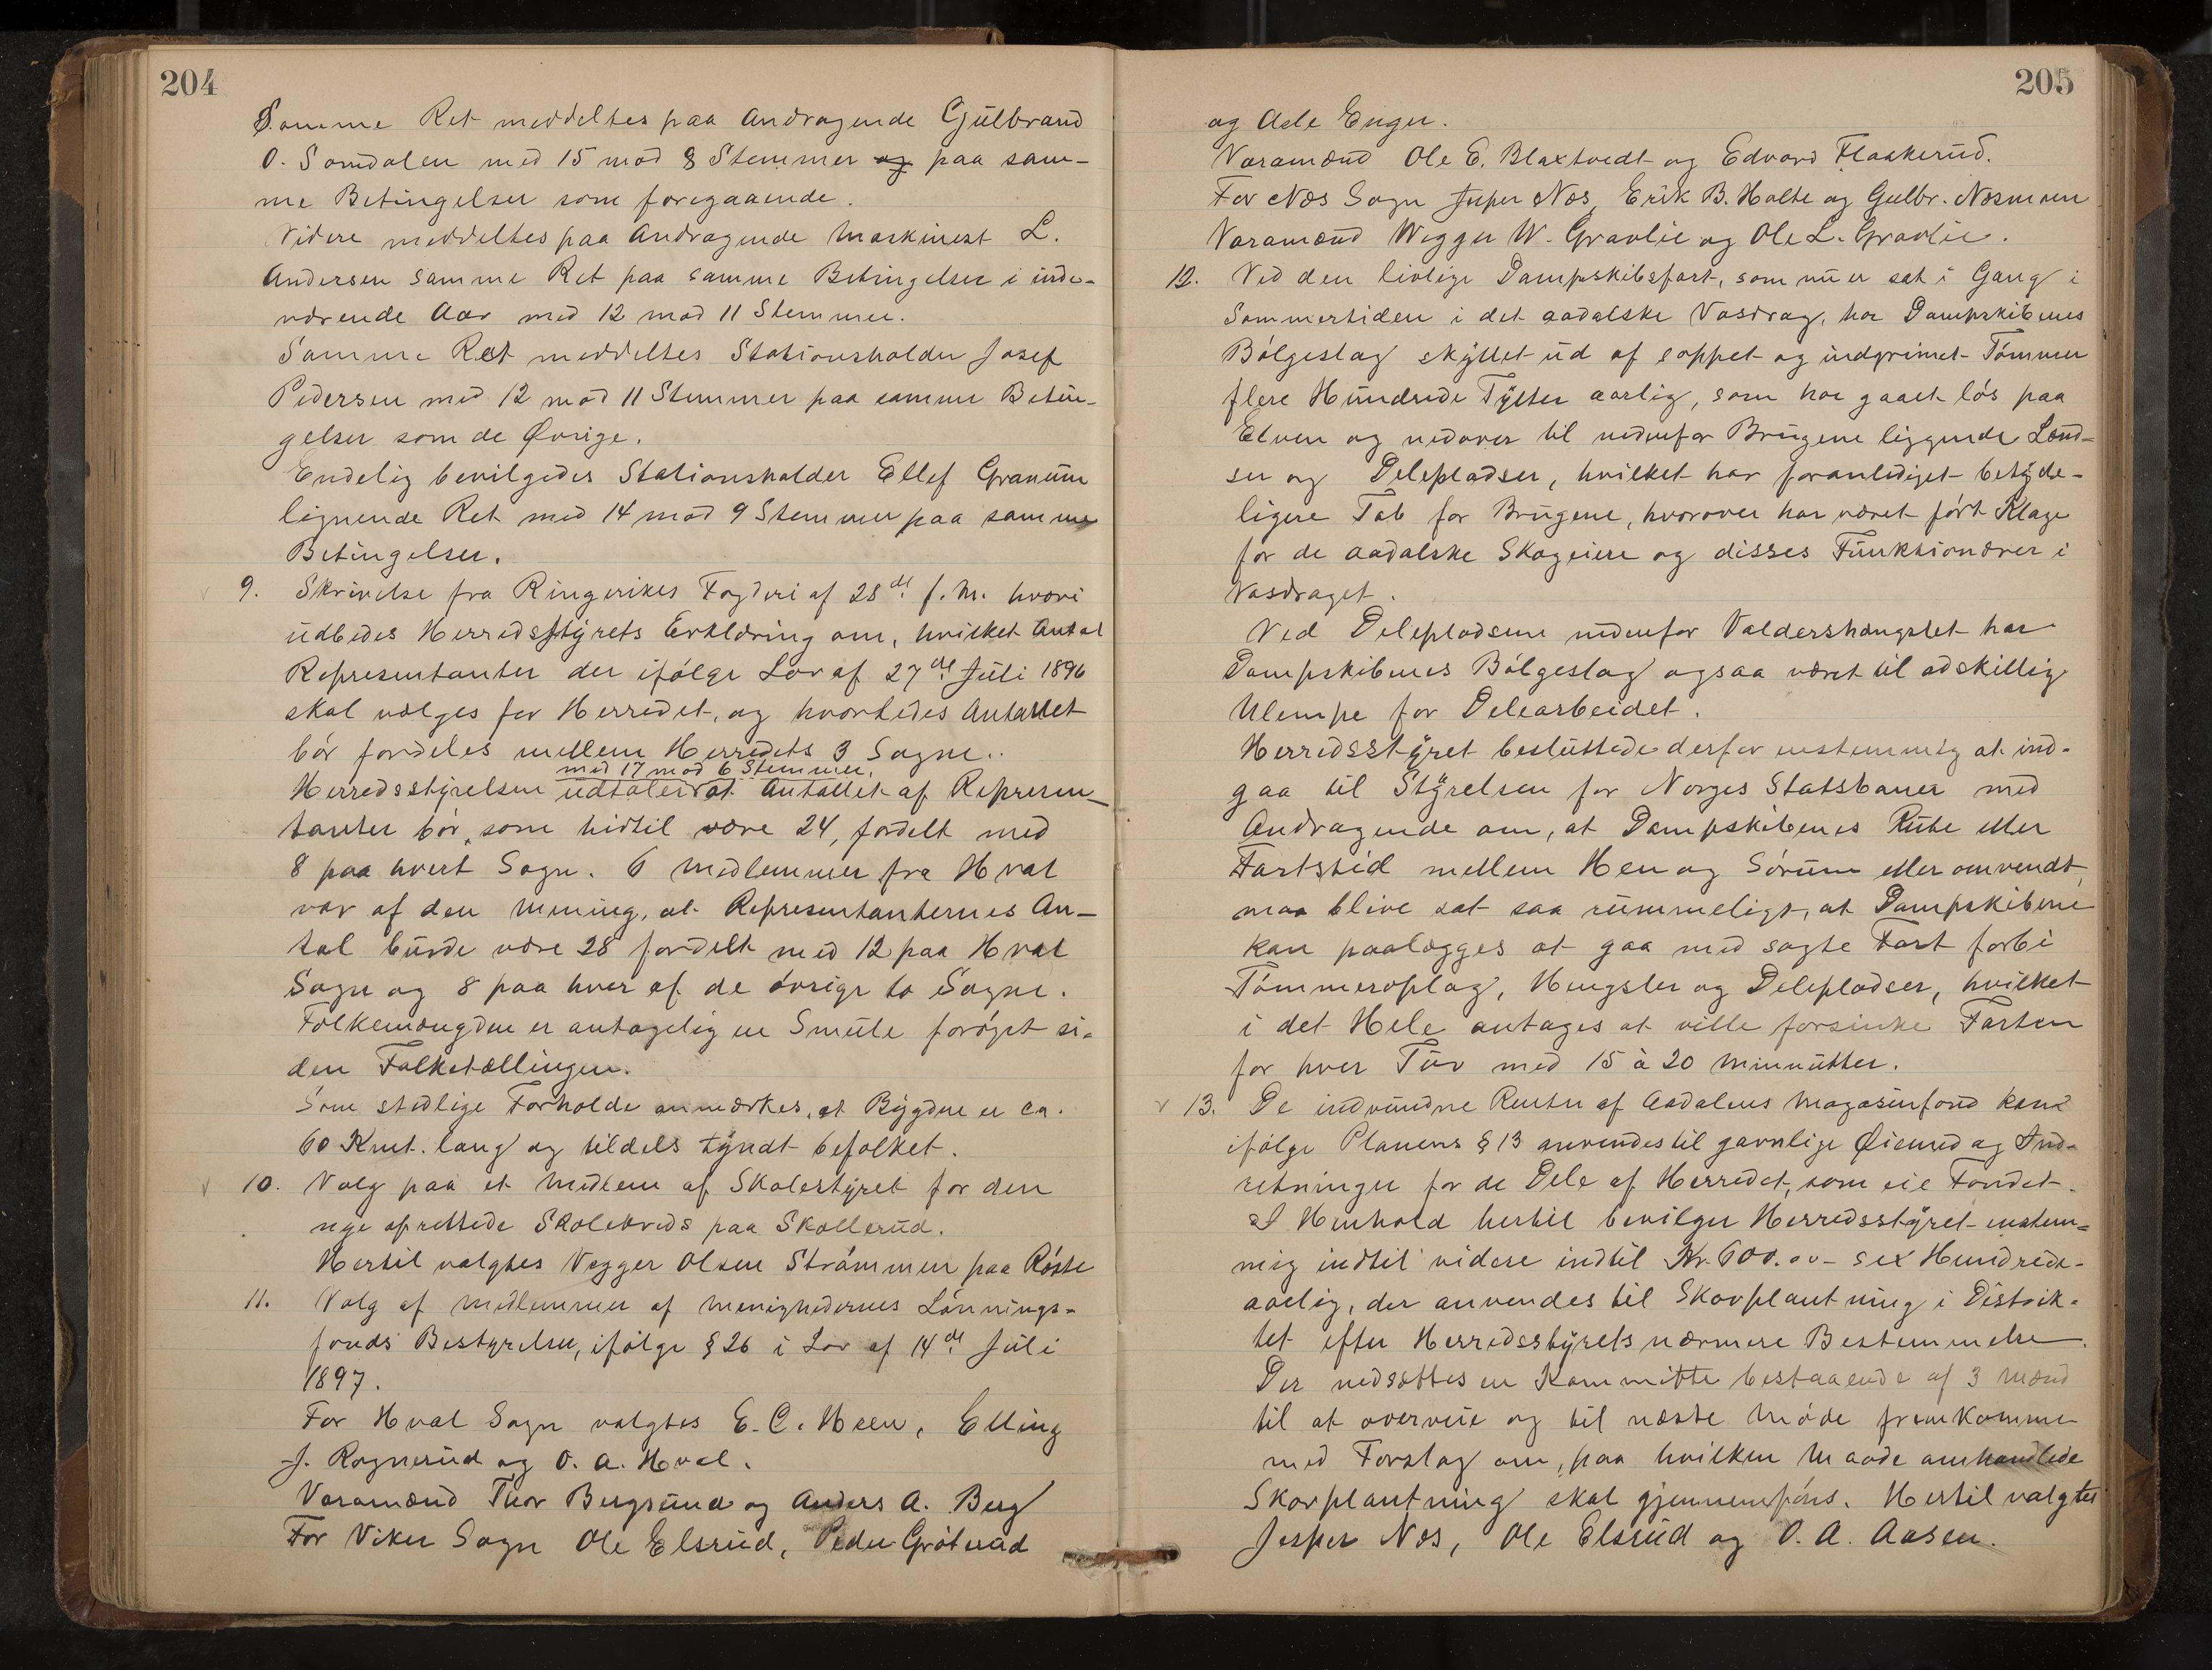 204
Samme Ret meddeltes paa Andragende Gulbrand
O. Somdalen med 15 mod 8 Stemmer og paa sam-
me Betingelser som foregaaende.
Videre meddeltes paa Andragende Maskinist L.
Andersen samme Ret paa samme Betingelser i inde-
værende Aar med 12 mod 11 Stemmer.
Samme Ret meddeltes Stationsholder Josef
Pedersen med 12 mod 11 Stemmer paa samme Betin-
gelser som de Øvrige.
Endelig bevilgedes Stationsholder Ellef Granum
lignende Ret med 14 mod 9 Stemmer paa samme
Betingelser.
9. Skrivelse fra Ringerikes Fogderi af 28de f. M. hvori
udbedes Herredsstyrets Erklæring om, hvilket Antal
Representanter der ifølge Lov af 27de Juli 1896
skal vælges for Herredet, og hvorledes Antallet
bør fordeles mellem Herredets 3 Sogne.
med 17 mod 6 Stemmer,
Herredsstyrelsen udtaler at Antallet af Represen-
tanter bør, som hidtil være 24, fordelt med
8 paa hvert Sogn. 6 Medlemmer fra Hval
var af den Mening, at Representanternes An-
tal burde være 28 fordelt med 12 paa Hval
Sogn og 8 paa hver af de øvrige to Sogne.
Folkemængden er antagelig en Smule forøget si-
den Folketællingen.
Som stedlige Forholde anmærkes, at Bygden er ca.
60 Kmt. lang og tildels tyndt befolket.
10. Valg paa et Medlem af Skolestyret for den
nye oprettede Skolekreds paa Skollerud.
Hertil valgtes Vegger Olsen Strømmen paa Røste
11. Valg af Medlemmer af Menighedernes Lønnings-
fonds Bestyrelse, ifølge § 26 i Lov af 14de Juli
1897.
For Hval Sogn valgtes E. C. Heen, Elling
J. Rognerud og O. A. Hval.
Varamænd Thor Bergsund og Anders A. Berg
For Viker Sogn Ole Elsrud, Peder Grøterud
205
og Asle Enger.
Varamænd Ole E. Blaxtvedt og Edvard Flaskerud.
For Næs Sogn Jesper Næs, Erik B. Holte og Gulbr. Næsmoen
Varamænd Wegger W. Gravlie og Ole L. Gravlie.
12. Ved den livlige Dampskibsfart, som nu er sat i Gang i
Sommertiden i det aadalske Vasdrag, har Dampskibenes
Bølgeslag skyllet ud af soppet og indgrimet Tømmer
flere Hundrede Tylter aarlig, som har gaaet løs paa
Elven og nedover til nedenfor Brugene liggende Lænd-
ser og Delepladser, hvilket har foranlediget betyde-
ligere Tab for Brugene, hvorover har været ført Klage
for de aadalske Skogeiere og disses Funktionærer i
Vasdraget.
Ved Delepladsene nedenfor Valdershængslet har
Dampskibenes Bølgeslag ogsaa været til adskillig
Ulempe for Delearbeidet.
Herredsstyret besluttede derfor enstemmig at ind-
gaa til Styrelsen for Norges Statsbaner med
Andragende om, at Dampskibenes Rute eller
Fartstid mellem Hen og Sørum eller omvendt,
maa blive sat saa rummeligt, at Dampskibene
kan paalægges at gaa med sagte Fart forbi
Tømmeroplag, Hengsler og Delepladser, hvilket
i det Hele antages at ville forsinke Farten
for hver Tur med 15 à 20 Minnutter.
13. De indvundne Renter af Aadalens Magasinfond kan
ifølge Planens § 13 anvendes til gavnlige Øiemed og Ind-
retninger for de Dele af Herredet, som eie Fondet.
I Henhold hertil bevilger Herredsstyret enstem-
mig indtil videre indtil Kr. 600.00 - sex Hundrede -
aarlig, der anvendes til Skovplantning i Distrik-
tet efter Herredsstyrets nærmere Bestemmelse.
Der nedsættes en Kommitte bestaaende af 3 Mænd
til at overveie og til næste Møde fremkomme
med Forslag om, paa hvilken Maade omhandlede
Skovplantning skal gjennemføres. Hertil valgtes
Jesper Næs, Ole Elsrud og O. A. Aasen.